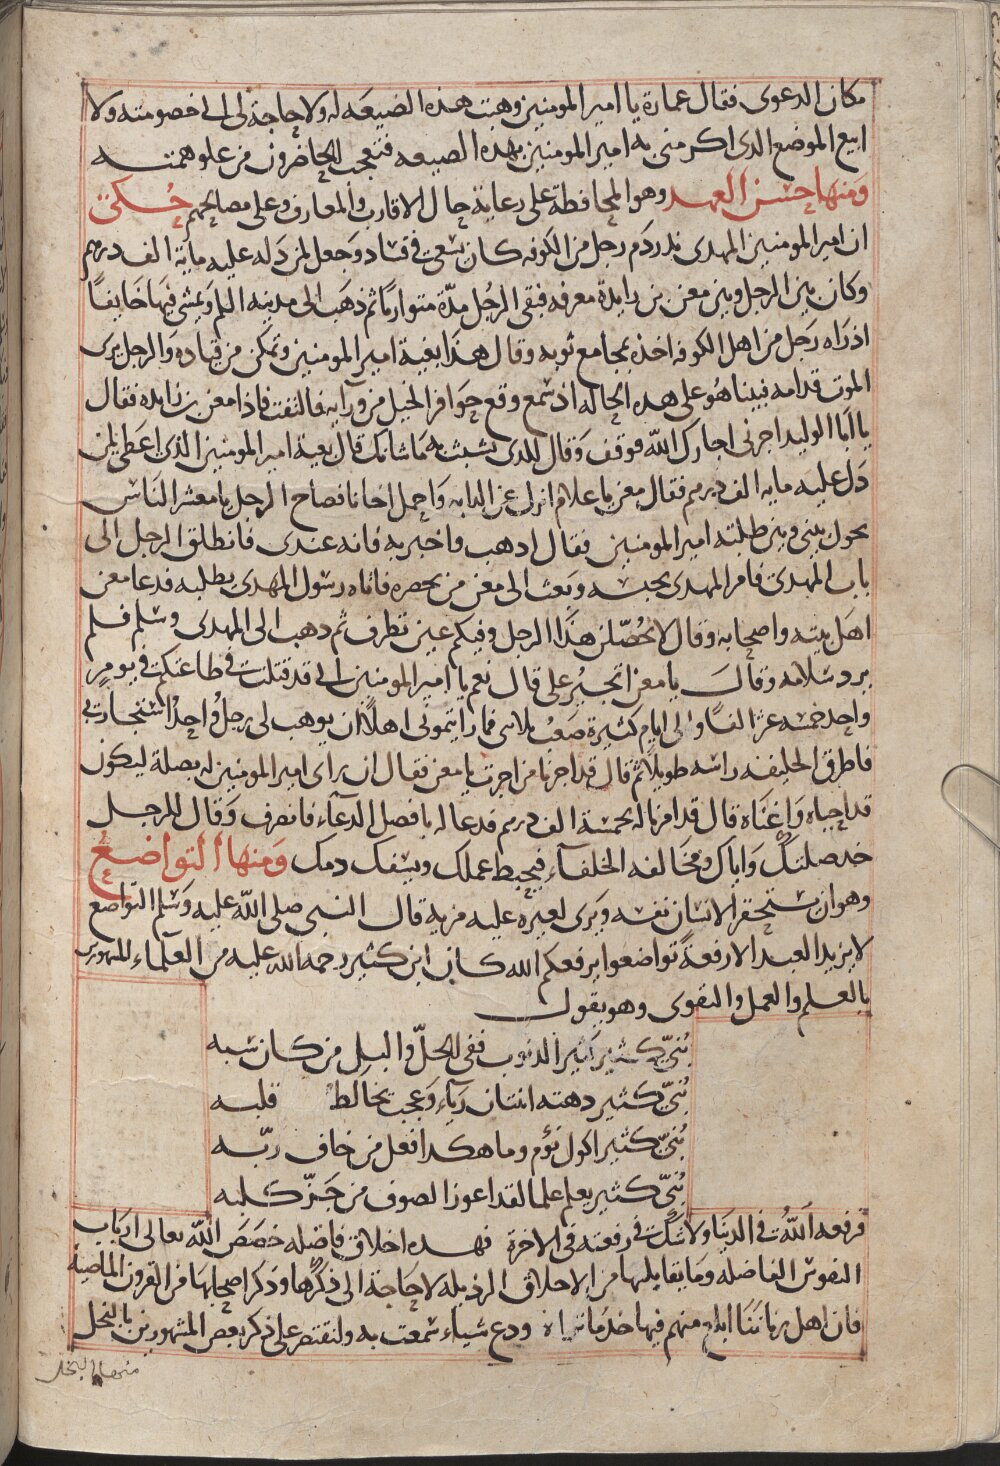 مكان الدعوى فقال عمارة يا امير المومنين وهبت هذه الضيعه له ولا حاجة لى الى خصومته ولا
ابيع الموضع الدى اكرمنى به امير المومنين بهده الصيعه فتعجب الحاضرون من علو همته
ومنها حسن العهد وهو المحافظة على رعاية حال الاقارب والمعارف وعلى مصالحهم حكى
ان امير المومنين المهدى ندر دم رجل من الكوفه كان يسعى فى فساد وجعل لمن دله عليه ماية الف درهم
وكان بين الرجل وبين معن بن زايدة معرفه فبقى الرجل مدّة متواريا ثم ذهب الى مدينه السلم ويمشى فيها خايفا
اذ رآه رجل من اهل الكوفه اخذه بمجامع ثوبه وقال هذا بغية امير المومنين وتمكن من قياده والرجل يرى
الموت قدامه فبينا هو على هده الحاله اذ سمع وقع حوافر الخيل من ورآيه فالتفت فاذا معن بن زايده فقال
يا ابا الوليد اجرنى اجارك الله فوقف وقال للدى تشبث به ما شانك قال بغية امير المومنين الذى اعطى لمن
دل عليه مايه الف درهم فقال معن يا غلام انزل عن الدابه واحمل اخانا فصاح الرجل يا معشر الناس
يحول بينى وبين طلبته امير المومنين فقال ادهب واخبره فانه عندى فانطلق الرجل الى
باب المهدى فامر المهدى بحبسه وبعث الى معن من يحضره فاتاه رسول المهدى يطلبه فدعا معن
اهل بيته واصحابه وقال لا يخلصن هذا الرجل وفيكم عين تطرف ثم دهب الى المهدى وسلم فلم
يرد سلامه وقال يا معن اتجير على قال نعم يا امير المومنين انى قد قتلت فى طاعتكم فى يوم
واحد خمسه عشر الفا والى ايام كثيرة صعب بلاى فما رايتمونى اهلا ان يوهب لى رجل واحد استجار بى
فاطرق الخليفه راسه طويلا ثم قال قد اجرنا من اجرت يا معن فقال ان راى امير المومنين له بصلة ليكون
قد احياه واغناه قال قد امرنا له بخمسة الف درهم فدعا له بافضل الدعآء فانصرف وقال للرجل
خد صلتك واياك ومخالفه الخلفآء فيحبط عملك ويسفك دمك ومنها التواضع
وهو ان يستحقر الانسان نفسه ويرى لغيره عليه مزية قال النبى صلى الله عليه وسلم التواضع
لا يزيد العبد الا رفعة تواضعوا يرفعكم الله كان ابن كثير رحمه الله عليه من العلماء المشهورين
بالعلم والعمل والتقوى وهو يقول
بُنىّ كثير كثير الدنوب ففى الحلّ والبل من كان سبه
بُنىّ كثير دهته اثنتان ريآء وعجب يخالط قلبه
بُنىّ كثير اكول نؤم وما هكدا فعل من خاف ربّه
بُنىّ كثير يعلم علما لقد اعوز الصوف من جزّ كلبه
فرفعه الله فى الدنيا ولا شك فى رفعته فى الاخرة فهده اخلاق فاضله خصص الله تعالى ارباب
النفوس الفاضله وما يقابلها من الاخلاق الرذيله لا حاجة الى ذكرها وذكر اصحابها من القرون الماضية
فان اهل زماننا ابلغ منهم فيها خد ما تراه ودع شياء سمعت به ولنقتصر على ذكر بعض المشهورين بالبخل
منها البخل